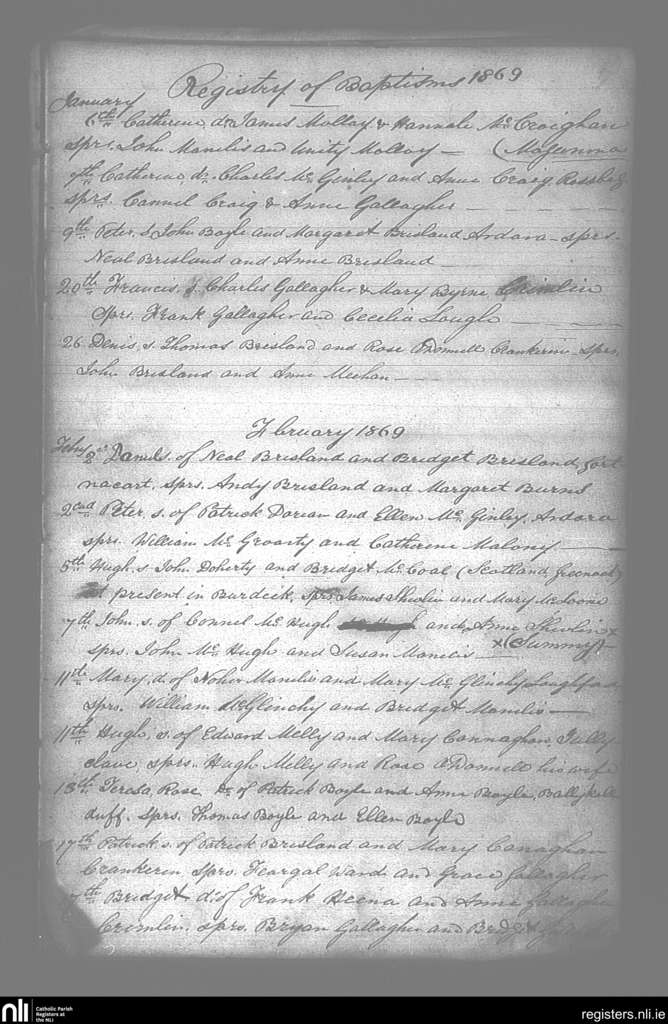 Registry of Baptisms 1869
January
6th Catherine d. James Molloy & Hannah Mc Croighan
sprs. John Manelis and Unity Molloy — (Maguinna
7th Catherine, d. Charles Mc Ginley and Anne Craig Rossbeg
sprs. Connel Craig & Anne Gallagher
9th Peter, s. John Boyle and Margaret Brisland Ardara - sprs.
Neal Brisland and Anne Brisland
20th Francis, s. Charles Gallagher & Mary Byrne Crimlin
Sprs. Frank Gallagher and Cecelia Lough
26 Denis, s. Thomas Brisland and Rose Crankerin sprs.
John Brisland and Anne Meehan —
February 1869
Feby 2nd Daniel s. of Neal Brisland and Bridget Brisland, Gort
nacart, sprs. Andy Brisland and Margaret Burns
2nd Peter, s. of Patrick Dorian and Ellen Mc Ginley, Ardara
sprs. William Mc Groarty and Catherine Malony —
5th Hugh, s. John Doherty and Bridget Mc Coal (Scotland Greenock)
at present in Burdeck, sprs. James Shivlin and Mary McLoone
7th John, s. of Connel Mc Hugh and Anne Shivlin x
sprs. John Mc Hugh and Susan Manelis x (Summy) —
11th Mary, d. of Noher Manelis and Mary Mc Glinchy, Loughfad
sprs. William McGlinchy and Bridget Manelis —
11th Hugh, s. of Edward Melly and Mary Cannaghan, Tully
clave, sprs. Hugh Melly and Rose O'Donnell his wife
13th Teresa, Rose d. of Patrick Boyle and Anne Boyle, Ballykill
duff. Sprs. Thomas Boyle and Ellen Boyle
17th Patrick, s. of Patrick Brisland and Mary Canaghan
Crankerin Sprs. Feargal Ward and Grace Gallagher
7th Bridget d. of Frank Heena and Anne Gallagher
Crimlin, sprs. Bryan Gallagher and Bridget
nli
Catholic Parish
Registers at
the NLI
registers.nli.ie